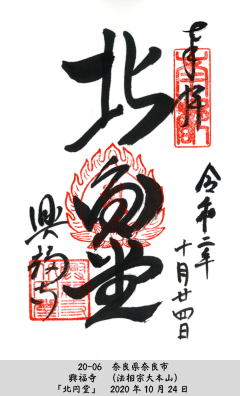 奉拝
北円堂
令和二年
十月廿四日
興福寺
20-06 奈良県奈良市
興福寺 (法相宗大本山)
「北円堂」 2020年10月24日